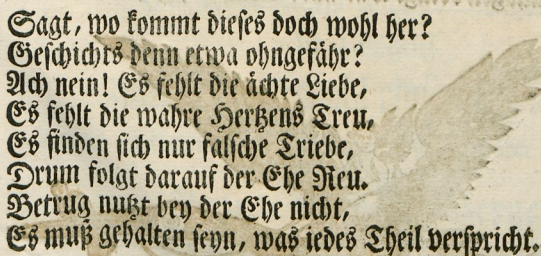 Sagt, wo kommt dieses doch wohl her?
Geschichts denn etwa ohngefähr?
Ach nein! Es fehlt die ächte Liebe,
Es fehlt die wahre Hertzens Treu,
Es finden sich nur falsche Triebe,
Drum folgt darauf der Ehe Reu.
Betrug nutzt bey der Ehe nicht,
Es muß gehalten seyn, was jedes Theil verspricht.